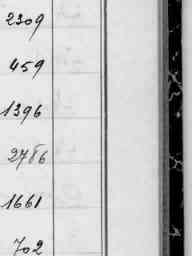 2309
459
1396
2786
1661
702